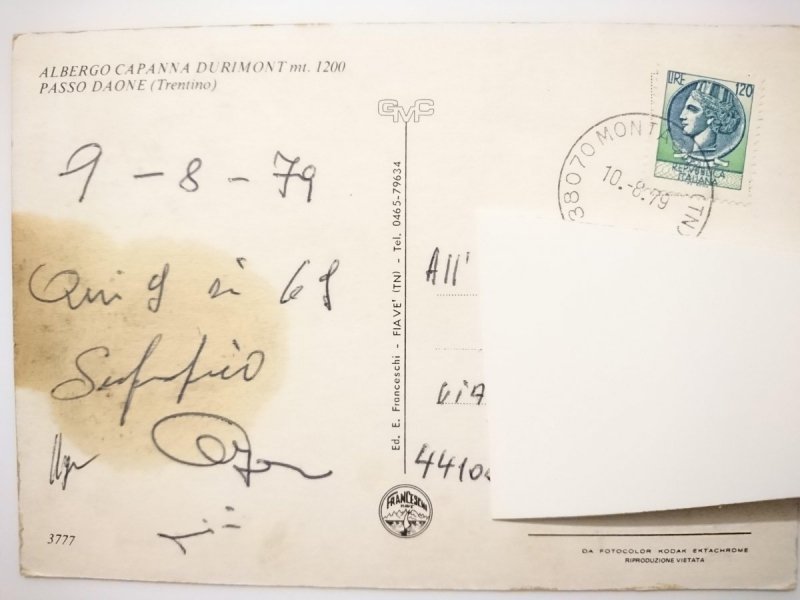 ALBERGO CAPANNA DURIMONT mt. 1200
PASSO DAONE (Trentino)
9 - 8 - 79
Qui
3777
GMC
Ed. E. Franceschi - FIAVE' (TN) - Tel. 0465-79634
FRANCESCHI
LIRE 120
REPVBBLICA
ITALIANA
38070 MONTA (TN)
10.-8.79
All'
VIA
4410
DA FOTOCOLOR KODAK EKTACHROME
RIPRODUZIONE VIETATA